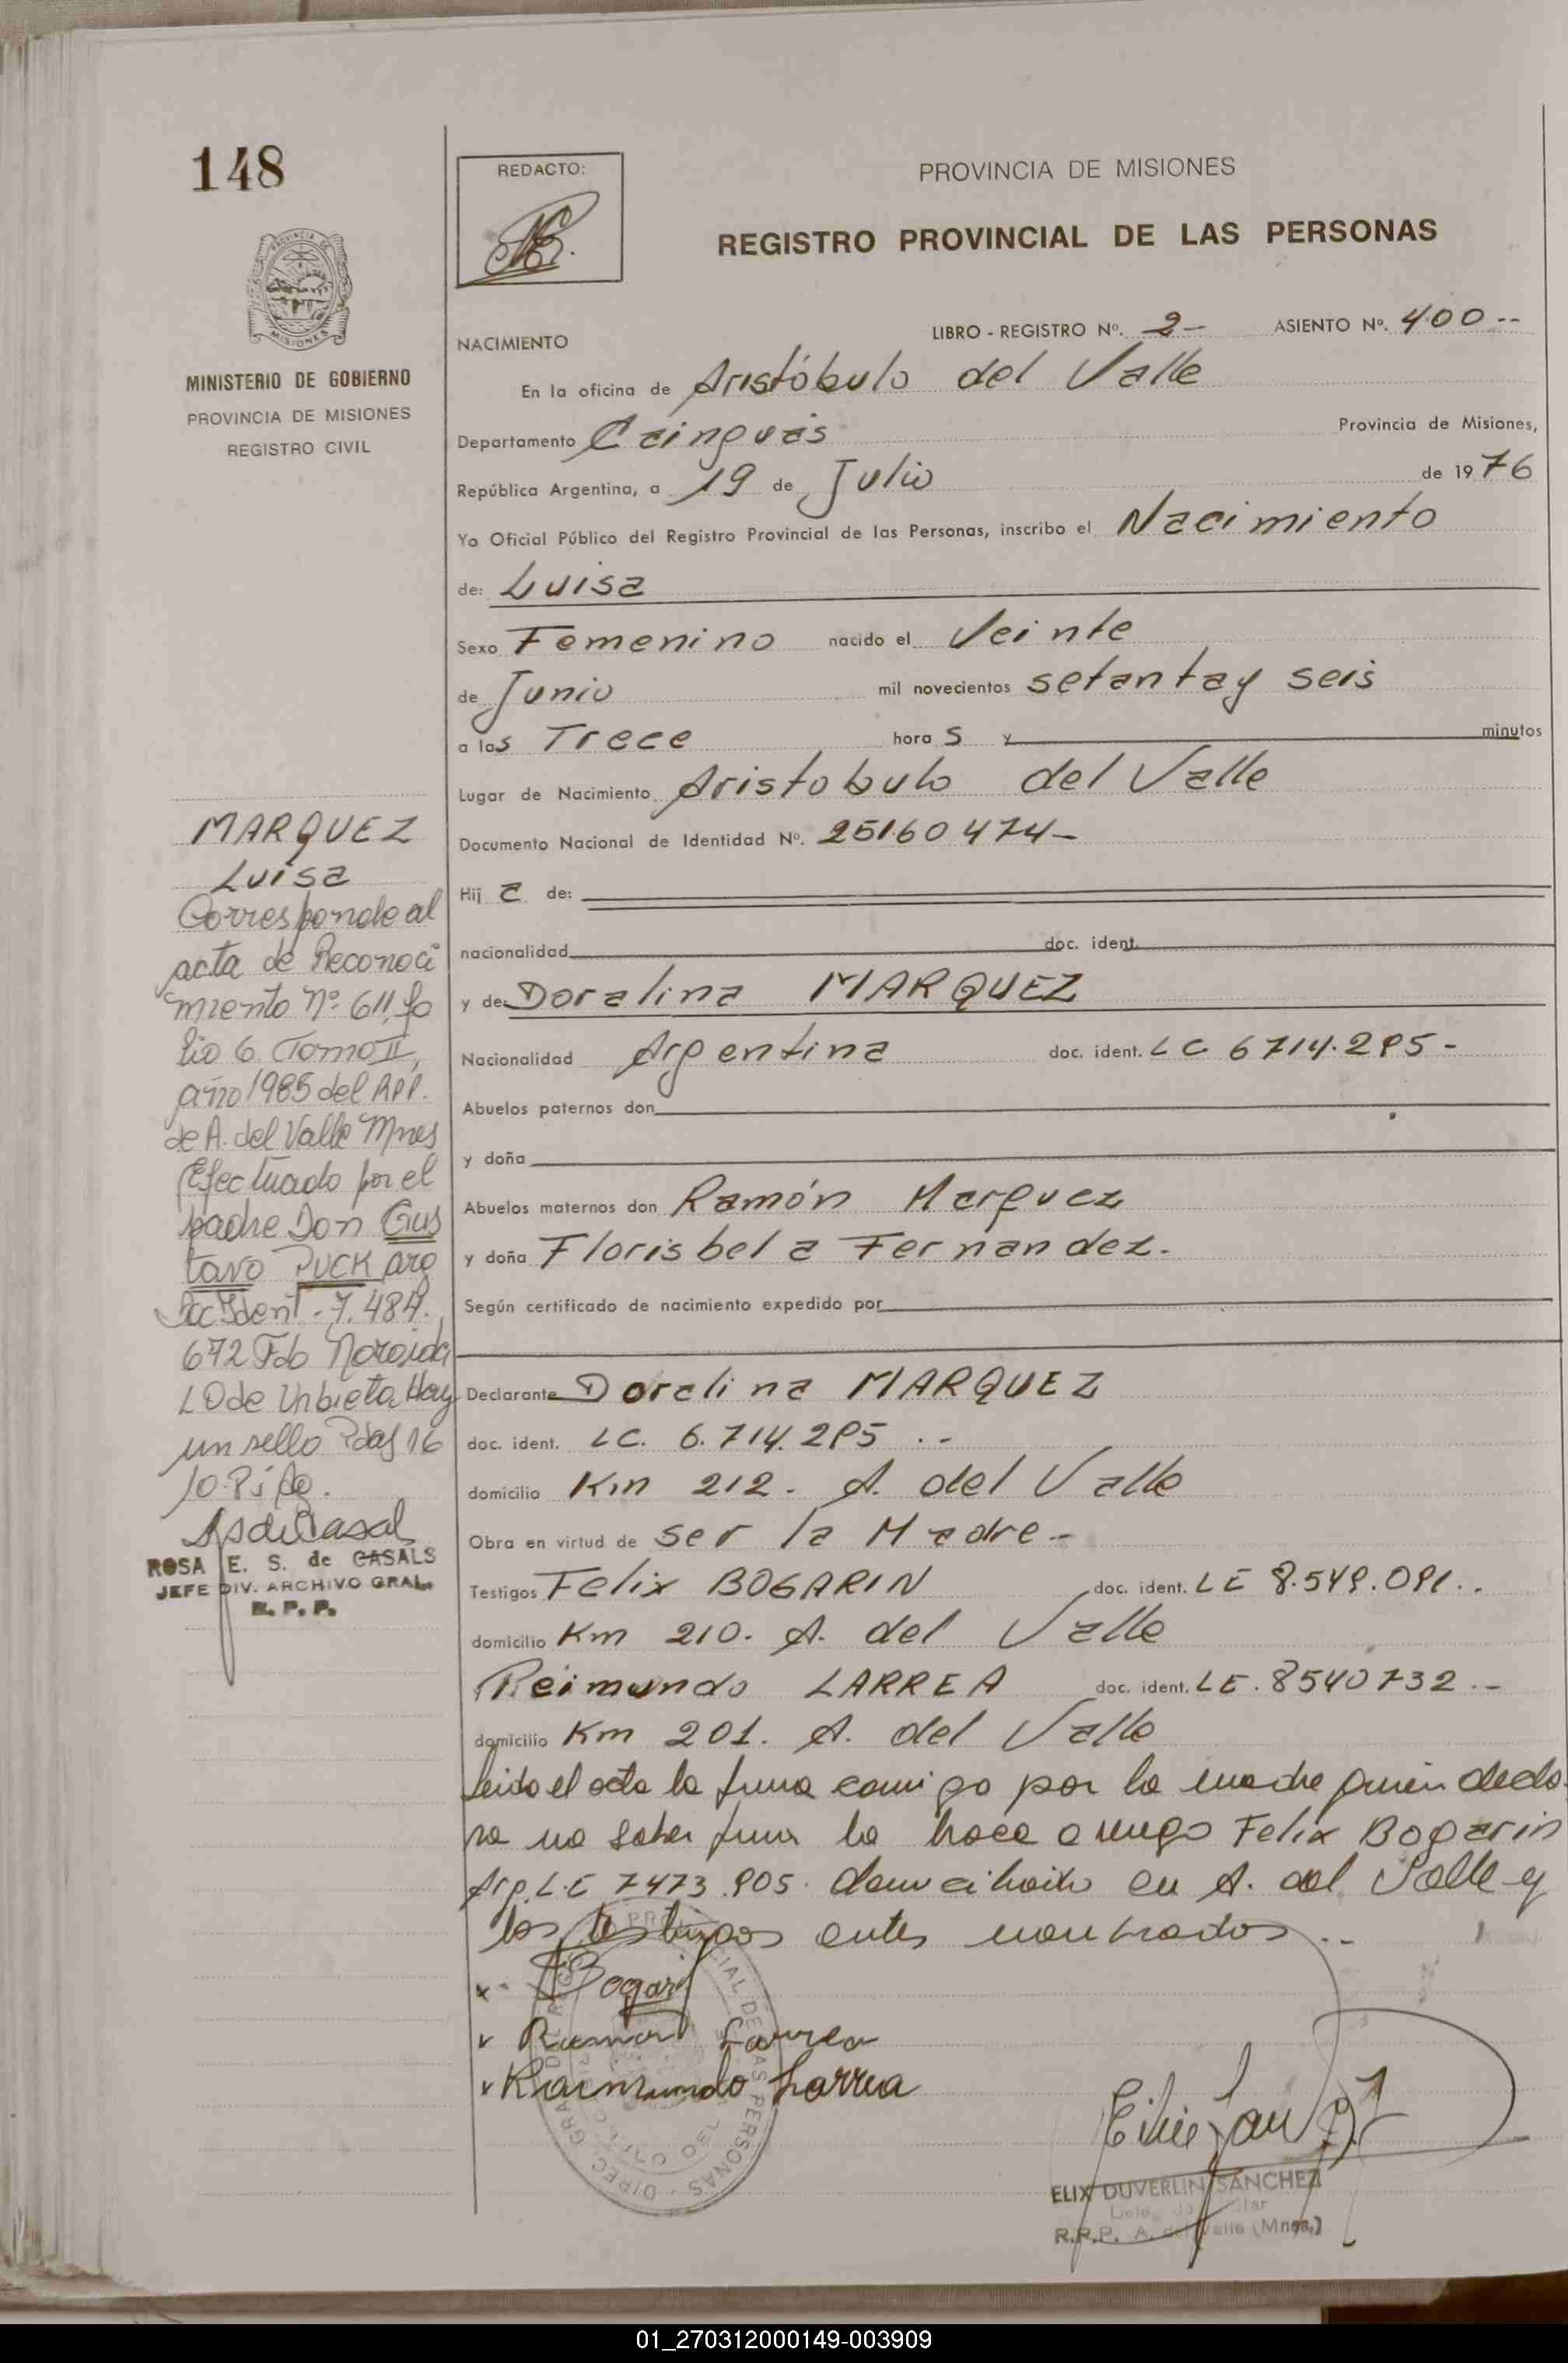 148
REDACTO:
PROVINCIA DE MISIONES
REGISTRO PROVINCIAL DE LAS PERSONAS
PROVINCIA DE
MISIONES
MINISTERIO DE GOBIERNO
PROVINCIA DE MISIONES
REGISTRO CIVIL
NACIMIENTO
LIBRO - REGISTRO Nº. 2- ASIENTO Nº. 400--
En la oficina de Aristóbulo del Valle
Departamento Cainguás Provincia de Misiones,
República Argentina, a 19 de Julio de 1976
Yo Oficial Público del Registro Provincial de las Personas, inscribo el Nacimiento
de: Luisa
Sexo Femenino nacido el Veinte
de Junio mil novecientos setenta y seis
a las Trece horas y minutos
Lugar de Nacimiento Aristobulo del Valle
Documento Nacional de Identidad Nº. 25160474-
Hija de:
nacionalidad doc. ident.
y de: Doralina MARQUEZ
Nacionalidad Argentina doc. ident. LC 6714.285-
Abuelos paternos don
y doña
Abuelos maternos don Ramón Marquez
y doña Florisbela Fernandez.
Según certificado de nacimiento expedido por
Declarante Doralina MARQUEZ
doc. ident. LC. 6.714.285 .-
domicilio Km 212. A. del Valle
Obra en virtud de ser la Madre.-
Testigos Felix BOGARIN doc. ident. LE 8.549.091..
domicilio Km 210. A. del Valle
Reimundo LARREA doc. ident. LE. 8540732.-
domicilio Km 201. A. del Valle
Leido el acta la firma conmigo por la madre quien decla
ra no saber firmar lo hace a ruego Felix Bogarin
Arg. L.E 7473.905. domiciliado en A. del Valle y
los testigos antes nombrados..
Bogari
Ramon Larrea
Raimundo Larrea
ELIX DUVERLIN SANCHEZ
R.P.P. A. del Valle (Mnes.)
MARQUEZ
Luisa
Corresponde al
acta de Reconoci
miento Nº 611, fo
lio 6 Tomo II,
año 1985 del RPP.
de A. del Valle Mnes
Efectuado por el
padre Don Gus
tavo PUCK arg
Doc Ident - 7.484.
672 Fdo Noroida
LO de Urbieta Hay
un sello Pdas 16
ROSA E. S. de CASALS
JEFE DIV. ARCHIVO GRAL.
R. P. P.
01_270312000149-003909